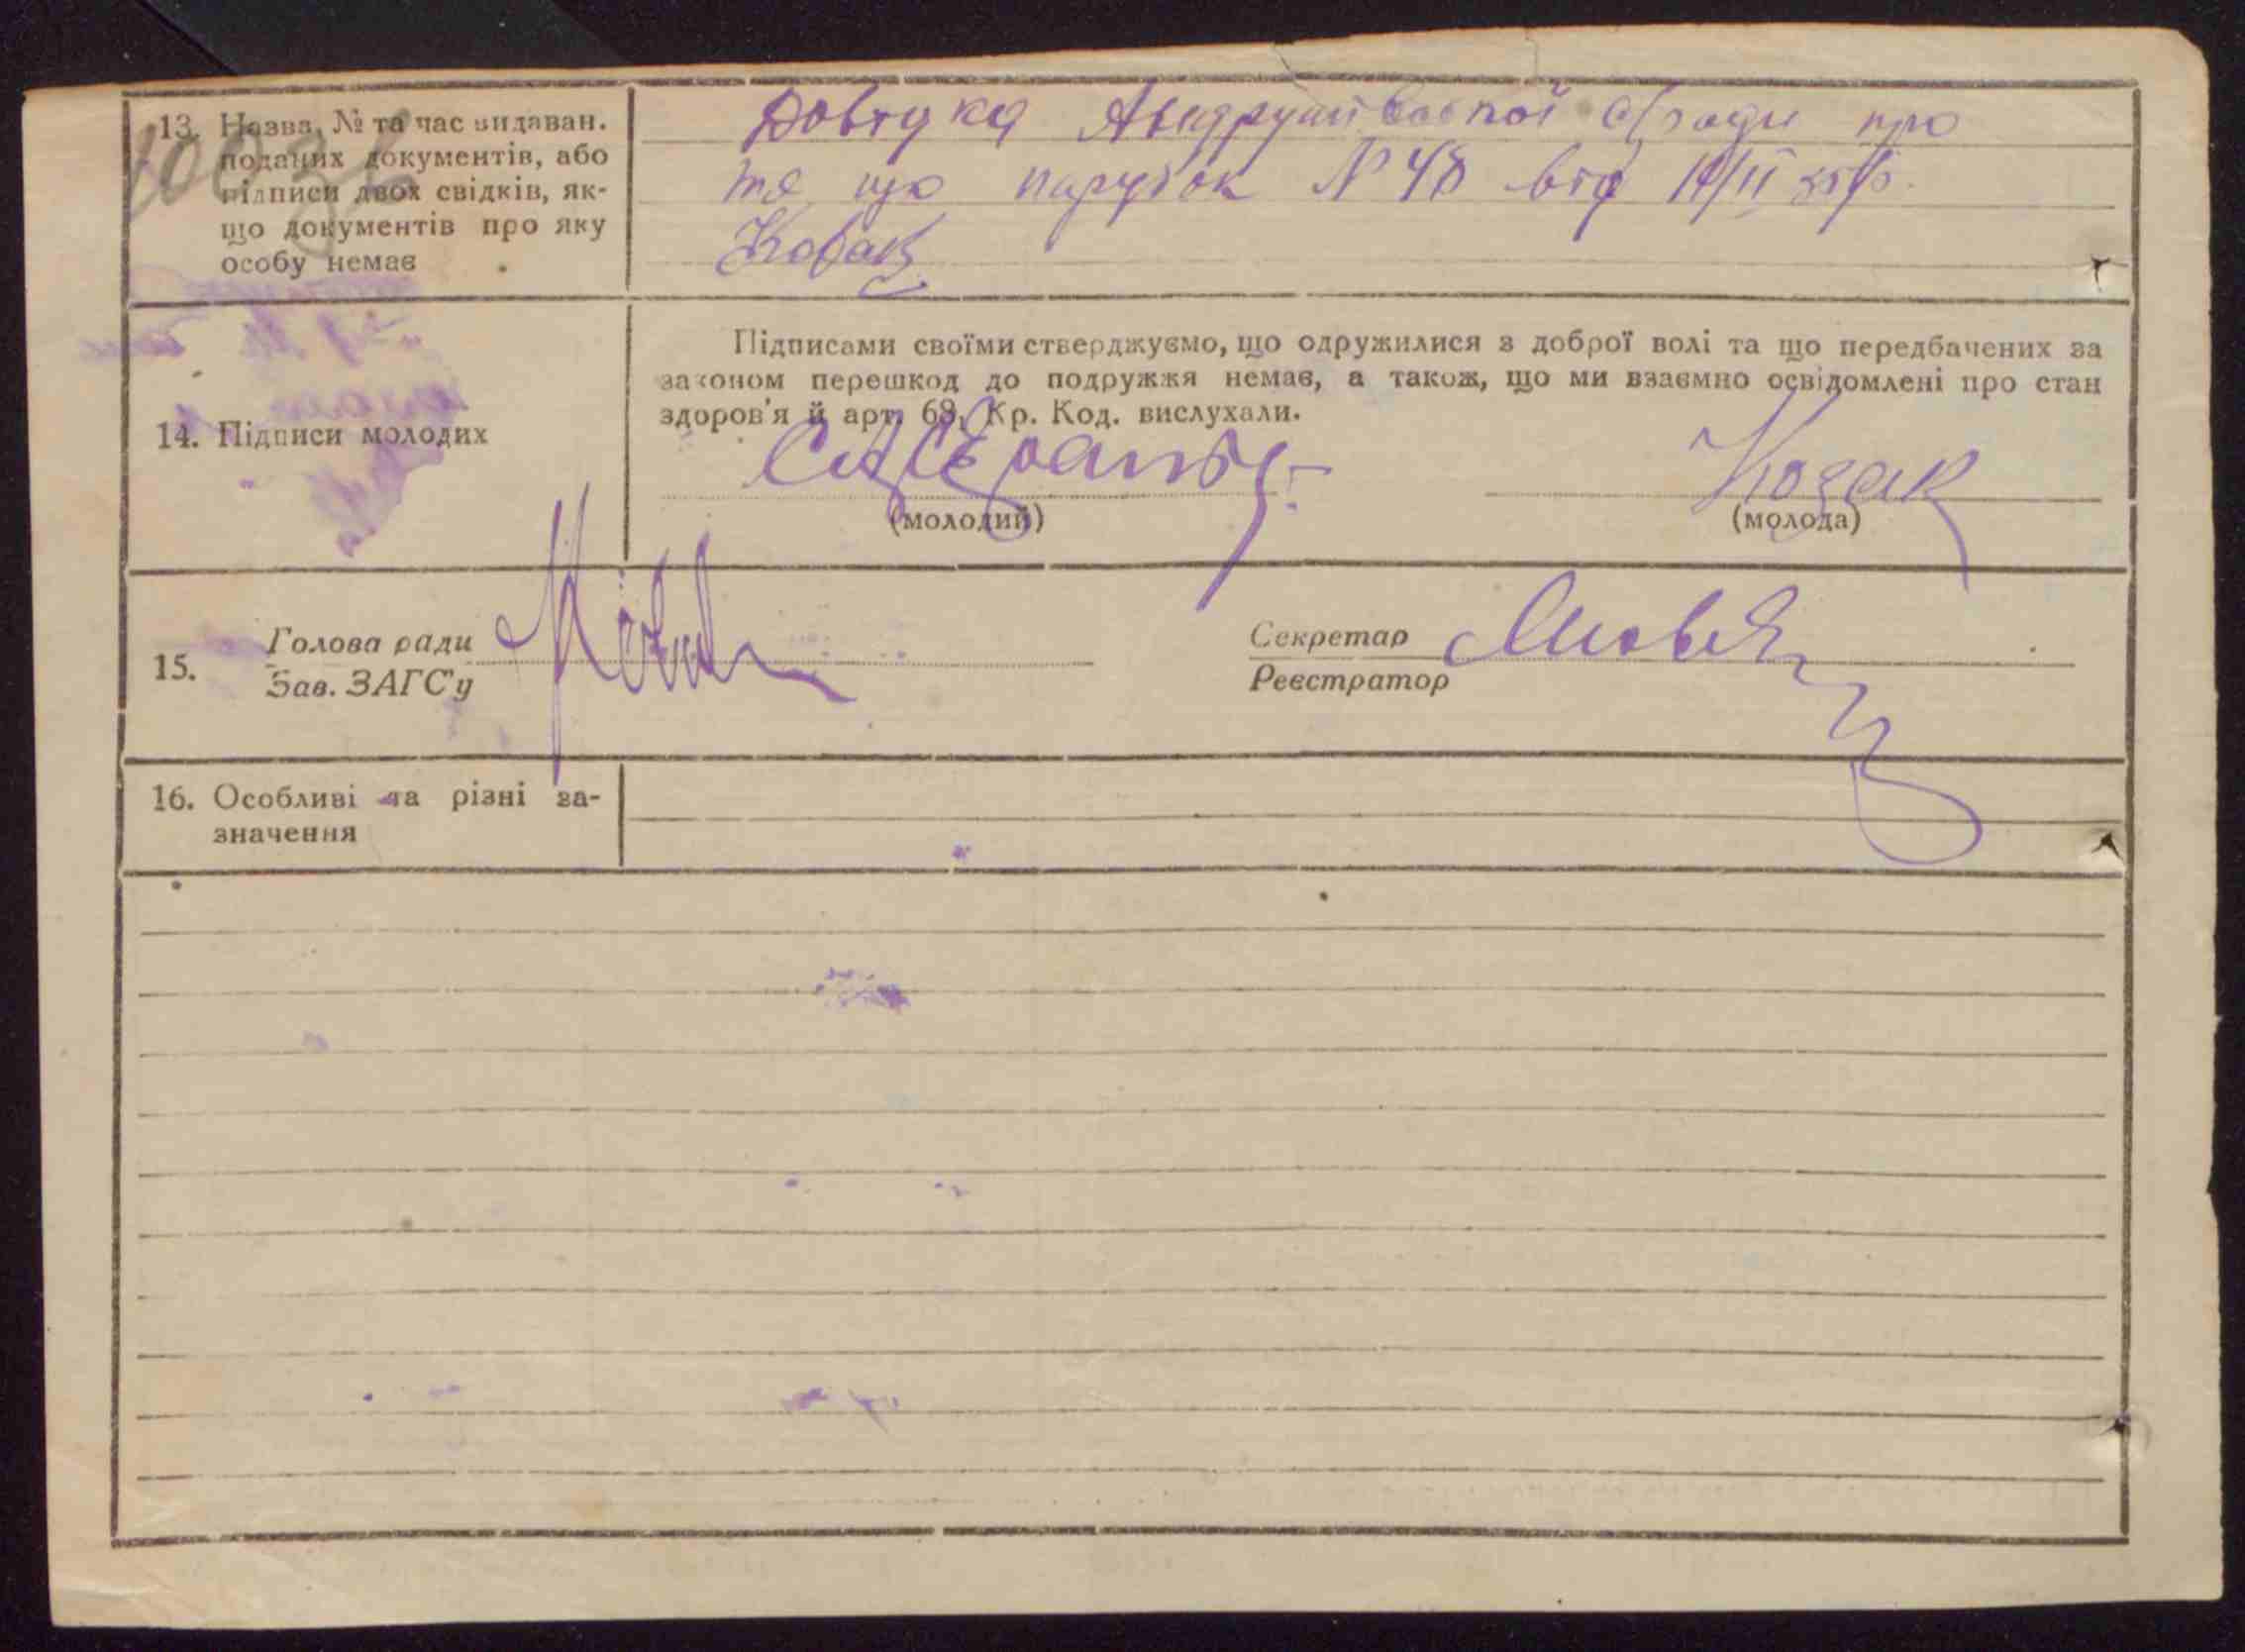 13. Назва, № та час видаван.
поданих документів, або
підписи двох свідків, як-
що документів про яку
особу немає
про
те що парубок № 48 від
Козак
14. Підписи молодих
Підписами своїми стверджуємо, що одружилися з доброї волі та що передбачених за
законом перешкод до подружжя немає, а також, що ми взаємно освідомлені про стан
здоров'я й арт. 69, Кр. Код. вислухали.
Козак
(молодий) (молода)
15. Голова ради
Зав. ЗАГС'у
Секретар
Реєстратор
16. Особливі та різні за-
значення